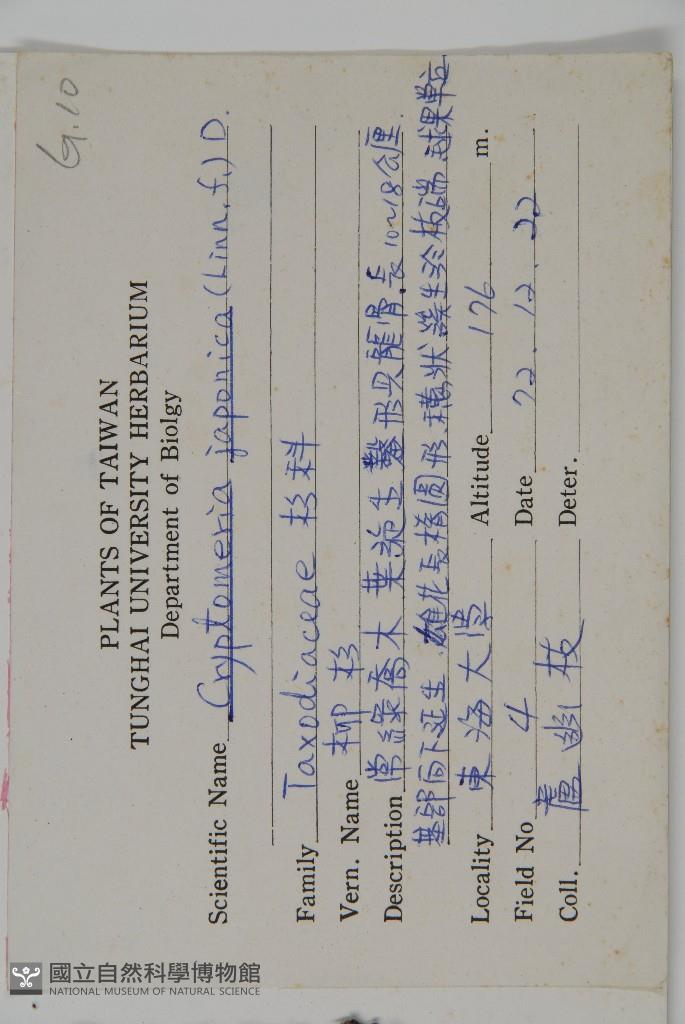 G.10
PLANTS OF TAIWAN
TUNGHAI UNIVERSITY HERBARIUM
Department of Biolgy
Scientific Name Cryptomeria japonica (Linn. f.) D.
Family Taxodiaceae 杉科
Vern. Name 柳杉
Description 常綠喬木 葉 生 形具龍骨 長10~18公厘.
基部向下延生 雄花長橢圓形 穗狀 生於枝端 球果單立
Locality 東海大學 Altitude 176 m.
Field No 4 Date 72.12.22
Coll. 盧 枝 Deter.
國立自然科學博物館
NATIONAL MUSEUM OF NATURAL SCIENCE